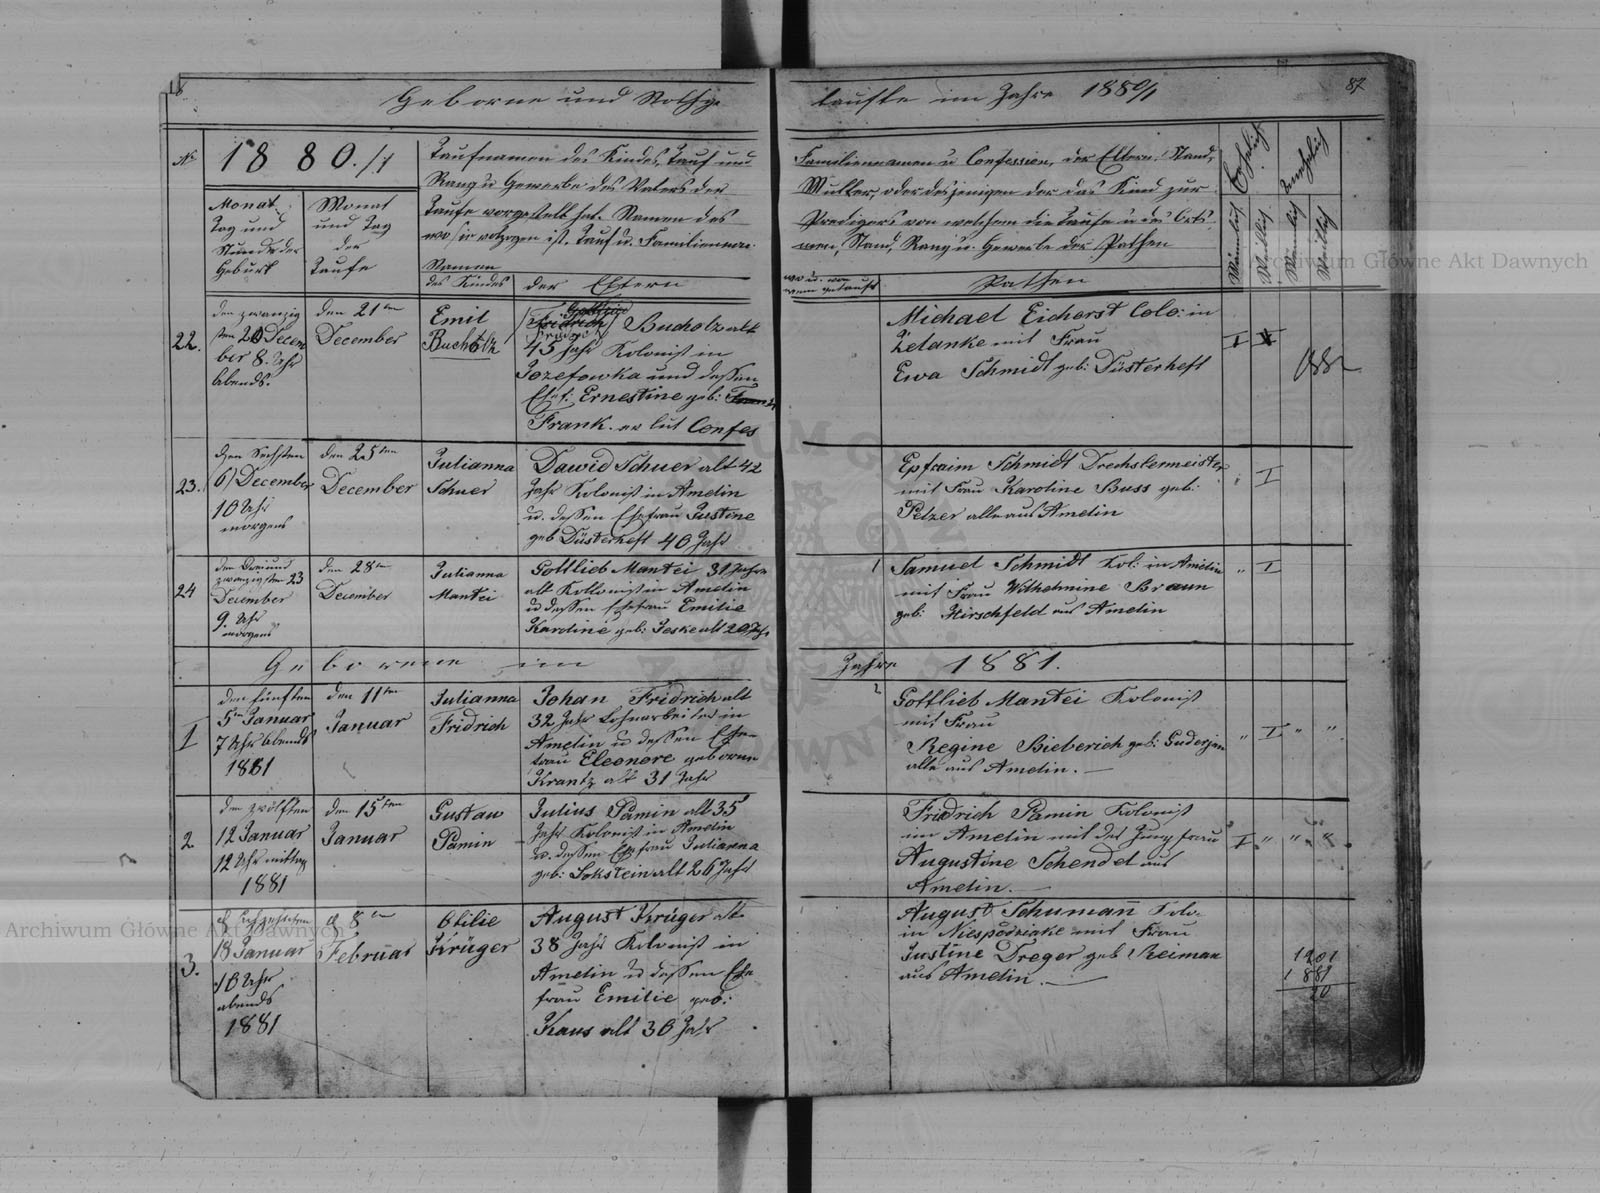 18
Geborne und Nothge
No
1880./1
Taufnamen des Kindes, Tauf und
Rang u Gewerbe des Vaters der
Taufe vorgestelt hat. Namen des
wo sie volzogen ist. Tauf u. Familienna:
Monat
Tag und
Stunde der
Geburt
Monat
und Tag
der
Taufe
Namen
des Kindes
der Eltern
22.
den zwanzig
sten 20 Decem
ber 8 Uhr
Abends.
den 21ten
December
Emil
Bucholtz
Bucholz alt
43 Jahr Kolonist in
Jozefowka und dessen
Ehef: Ernestine geb:
Frank. ev lut Confes
23.
den Sechsten
6 December
10 Uhr
morgens
den 25ten
December
Julianna
Schuer
Dawid Schuer alt 42
Jahr Kolonist in Amelin
u. dessen Ehefrau Justine
geb Düsterheft 40 Jahr
24
den Drei und
zwanzigsten 23
December
9. Uhr
morgens
den 28ten
December
Julianna
Mantei
Gottlieb Mantei 31 Jahre
alt Kollonist in Amelin
u dessen Ehefrau Emilie
Karoline geb: Jeske alt 20 Jhr
Geborene im
I
den fünften
5ten Januar
7 Uhr Abends
1881
den 11ten
Januar
Julianna
Fridrich
Johan Fridrich alt
32 Jahr Lohnarbeiter in
Amelin u dessen Ehe=
frau Eleonore geborne
Krantz alt 31 Jahr
2
den zwölften
12 Januar
12 Uhr mittag
1881
den 15ten
Januar
Gustaw
Pamin
Julius Pamin alt 35
Jahr Kolonist in Amelin
u. dessen Ehefrau Julianna
geb: Sokstein alt 26 Jahr
3.
18 Januar
10 Uhr
abends
1881
d 8ten
Februar
Otilie
Krüger
August Krüger alt
38 Jahr Kolonist in
Amelin u dessen Ehe
frau Emilie geb:
Kaus alt 36 Jahr
87
taufte im Jahre 1880/1
Familiennamen u Confession, der Eltern, Stand,
Mutter, oder desjenigen der das Kind zur
Predigers von welchem die Taufe u des Orts
men, Stand, Rang u. Gewerbe der Pathen
wo u. von
wem getauft
Pathen
Ehelich
Unehelich
Männlich
Weiblich
Männlich
Weiblich
Michael Eichorst Colo: in
Zelanke mit Frau
Ewa Schmidt geb: Düsterheft
I
Epfraim Schmidt Drechslermeister
mit Frau Karoline Buss geb:
Pelzer alle aus Amelin
I
1
Samuel Schmidt Kol: in Amelin
mit Frau Wilhelmine Braun
geb: Hirschfeld aus Amelin
" I
Jahre 1881.
2
Gottlieb Mantei Kolonist
mit Frau
Regine Bieberich geb: Guderjan
alle aus Amelin.
" I " "
Fridrich Pamin Kolonist
im Amelin mit der Jungfrau
Augustine Schendel aus
Amelin.
I " " "
August Schuman̄ Kolo-
in Niespodziake mit Frau
Justine Dreger geb Reiman
aus Amelin.
1901
1881
20
Archiwum Główne Akt Dawnych
Archiwum Główne Akt Dawnych